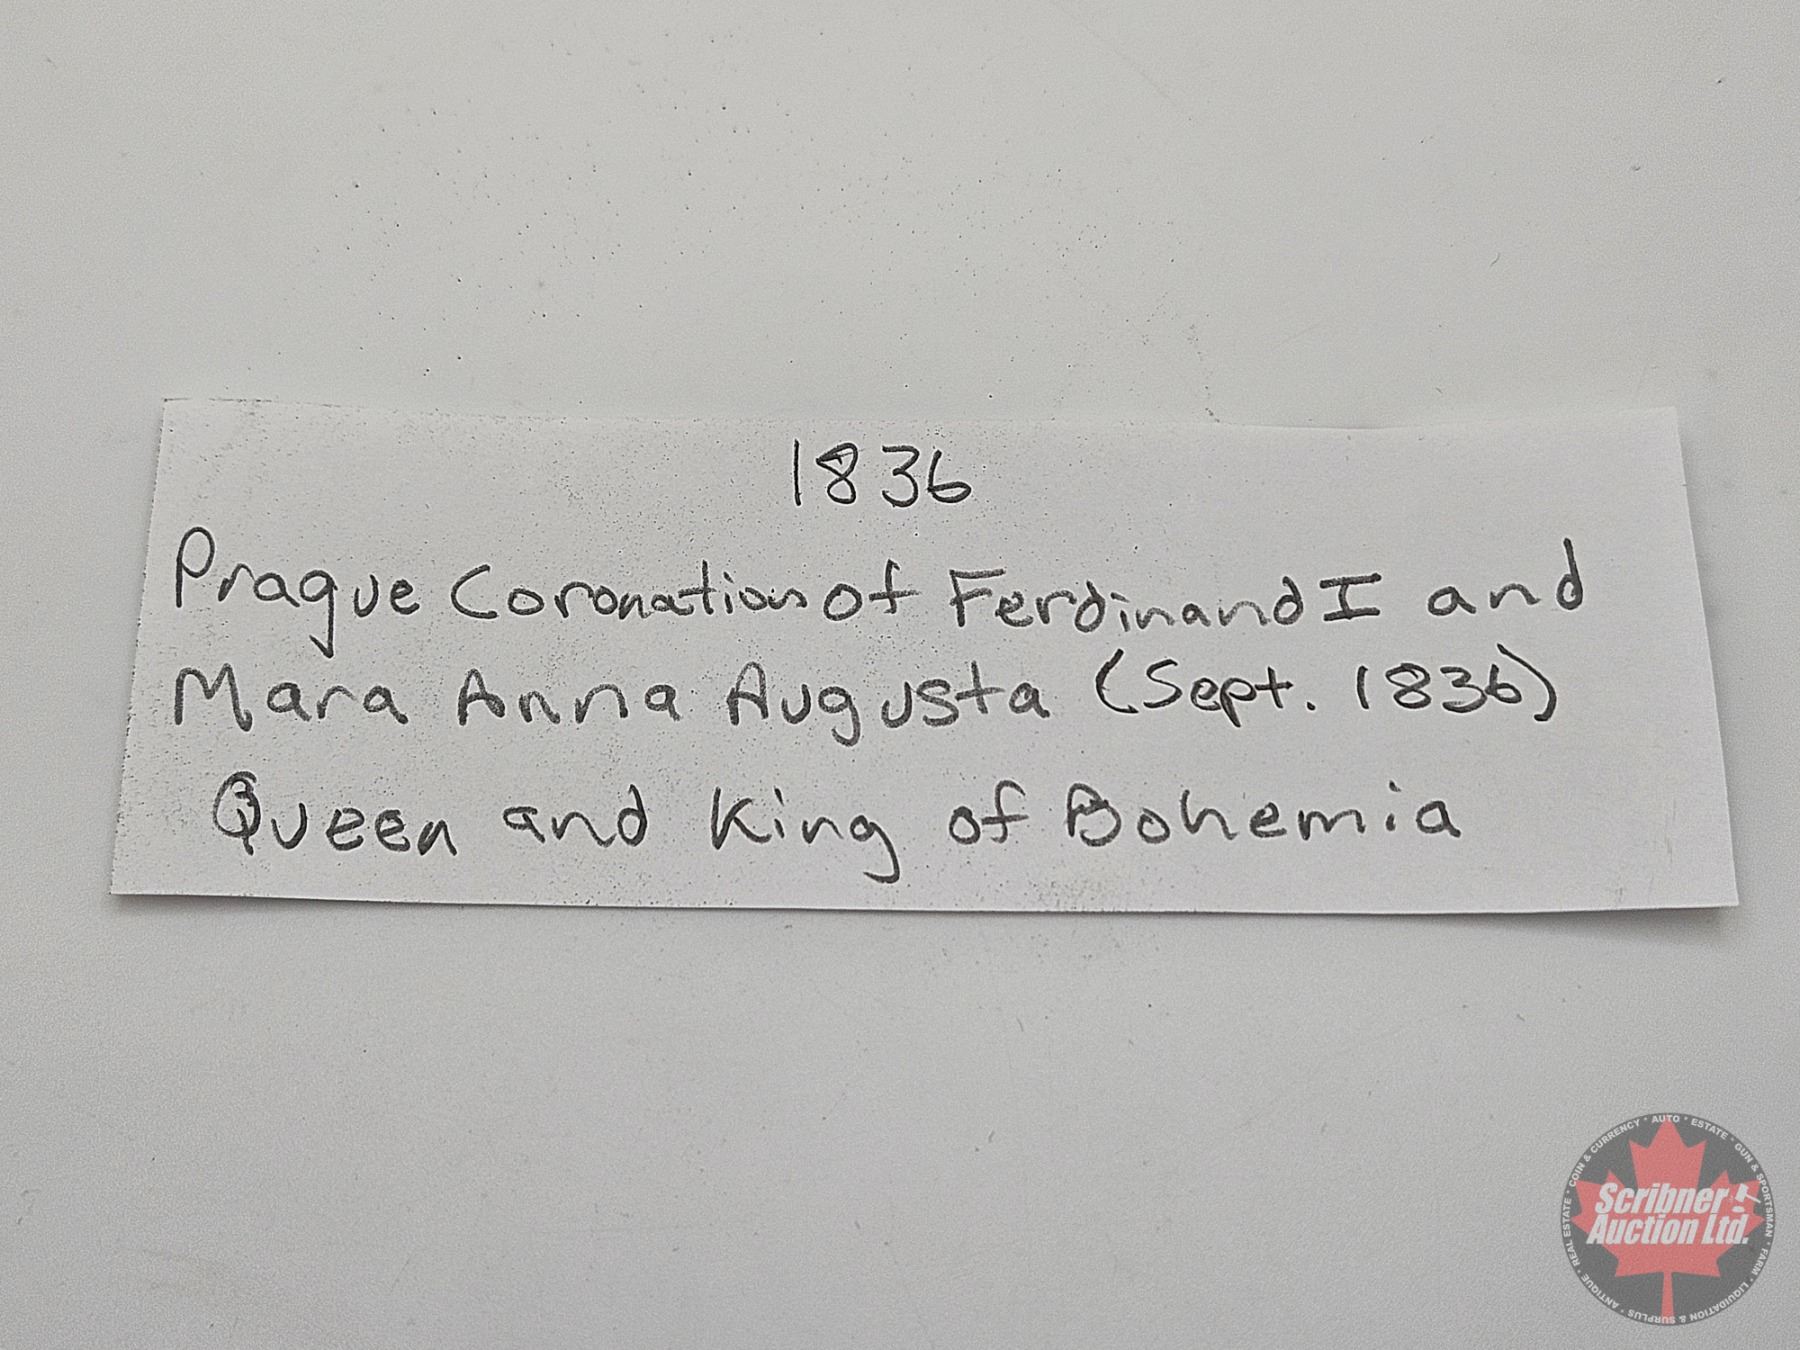 1836
Prague Coronation of Ferdinand I and
Mara Anna Augusta (Sept. 1836)
Queen and King of Bohemia
COIN & CURRENCY * AUTO * ESTATE * GUN & SPORTSMAN * FARM * LIQUIDATION & SURPLUS * ANTIQUE * REAL ESTATE *
Scribner
Auction Ltd.